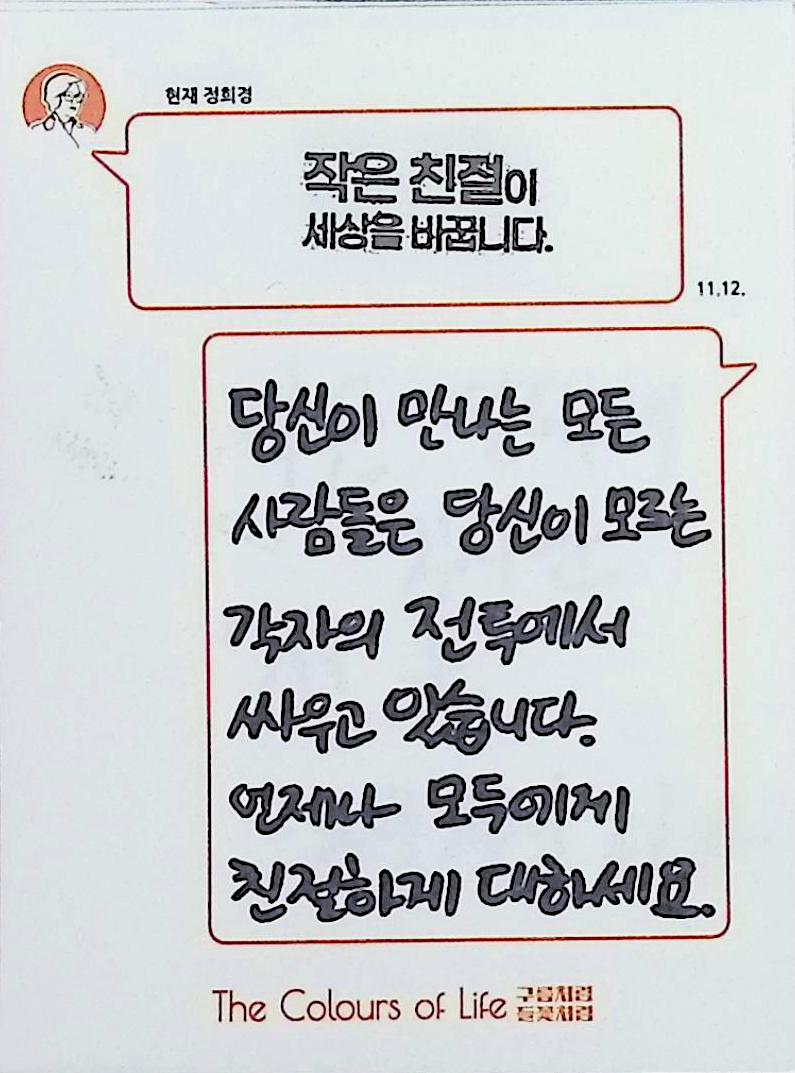 현재 정희경
작은 친절이
세상을 바꿉니다.
11.12.
당신이 만나는 모든
사람들은 당신이 모르는
각자의 전투에서
싸우고 있습니다.
언제나 모두에게
친절하게 대하세요.
The Colours of Life 구름처럼
들꽃처럼